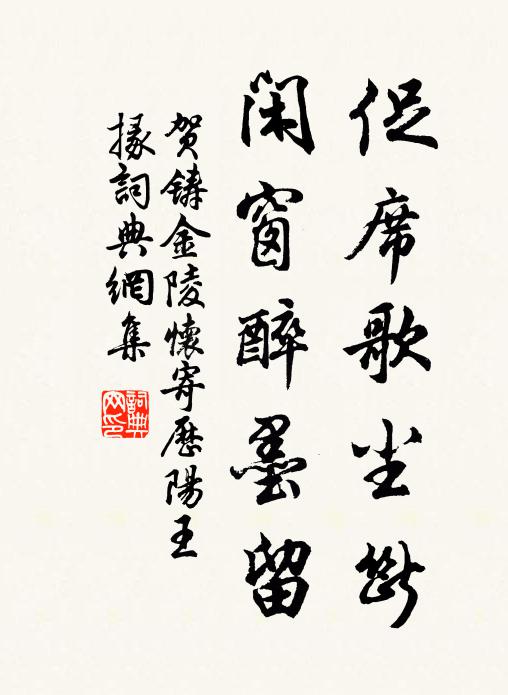 促席歌尘断
閑窗醉墨留
贺铸金陵懷寄歷陽王
掾詞典網集
詞典网印